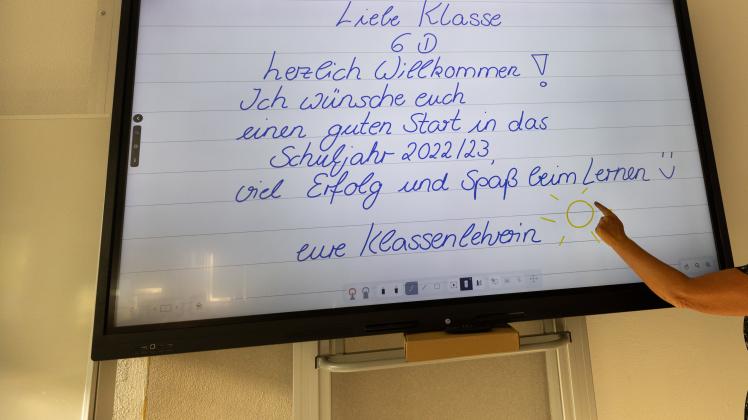 Liebe Klasse
6 D
herzlich Willkommen !
Ich wünsche euch
einen guten Start in das
Schuljahr 2022/23,
viel Erfolg und Spaß beim Lernen
eure Klassenlehrerin